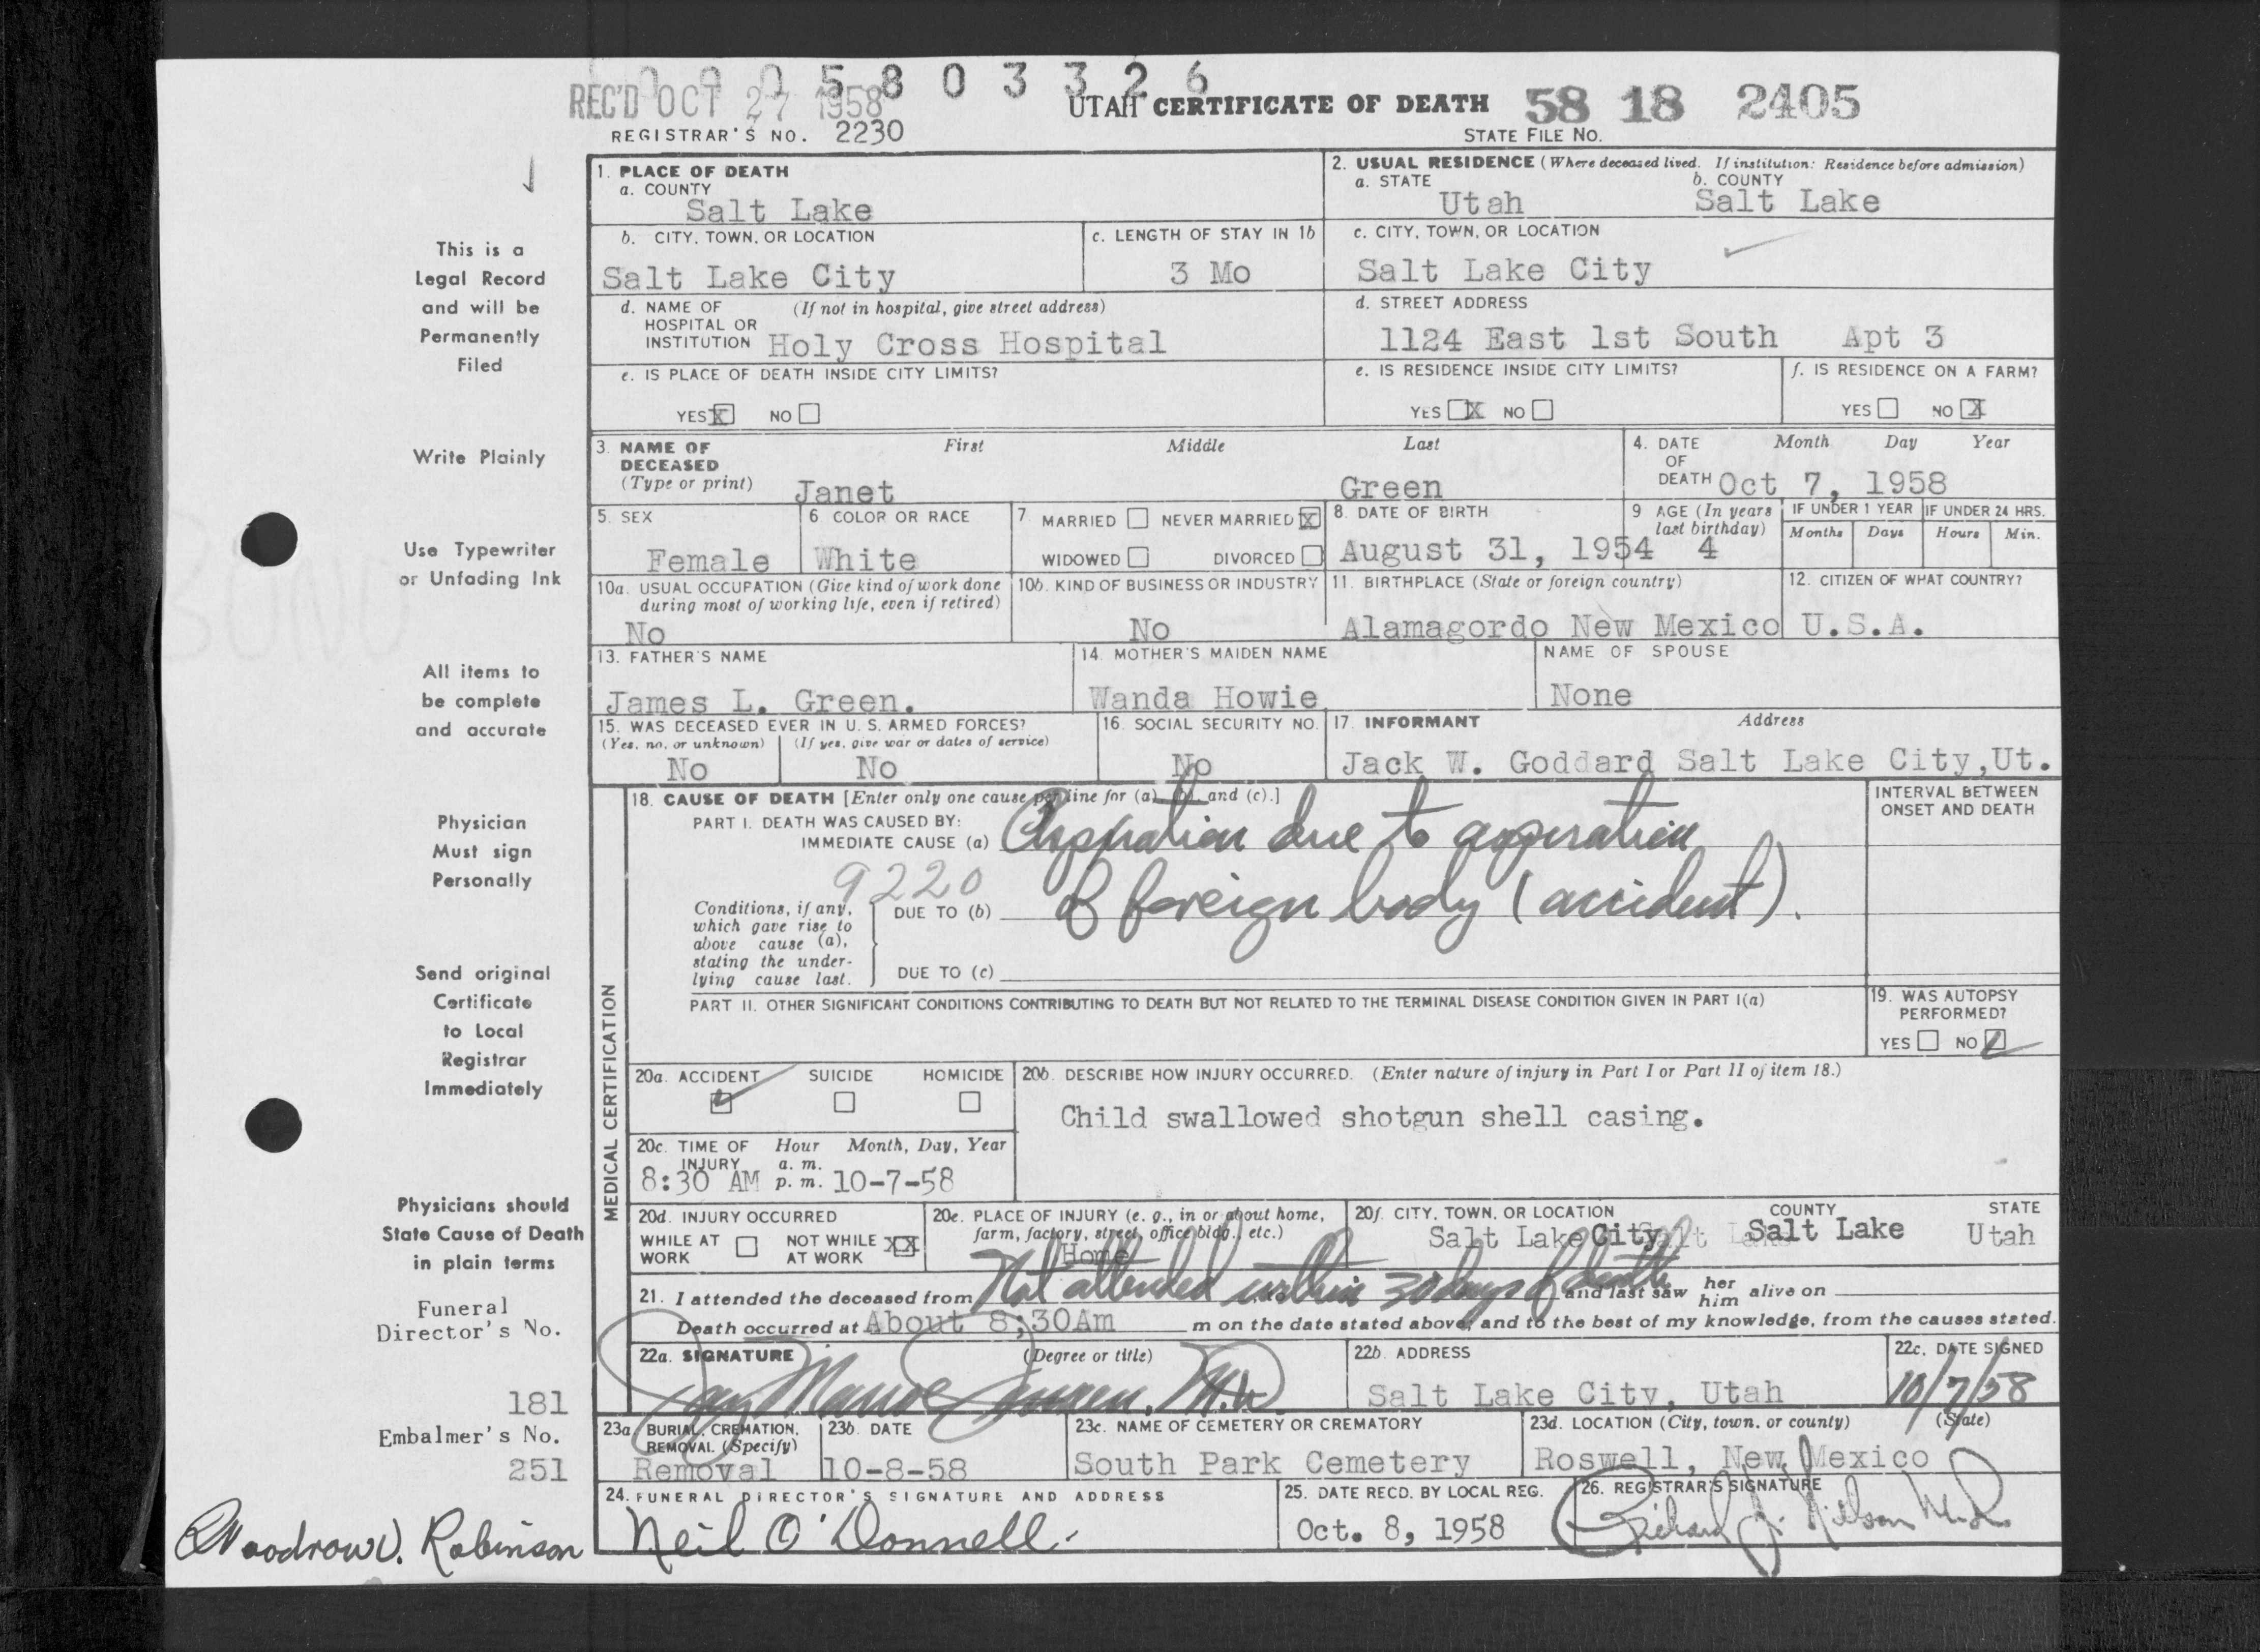 0 0 0 5 8 0 3 3 2 6
REC'D OCT 27 1958
UTAH CERTIFICATE OF DEATH 58 18 2405
REGISTRAR'S NO. 2230 STATE FILE NO.
This is a
Legal Record
and will be
Permanently
Filed
Write Plainly
Use Typewriter
or Unfading Ink
All items to
be complete
and accurate
Physician
Must sign
Personally
Send original
Certificate
to Local
Registrar
Immediately
Physicians should
State Cause of Death
in plain terms
Funeral
Director's No.
181
Embalmer's No.
251
Woodrow D. Robinson
1. PLACE OF DEATH
a. COUNTY
Salt Lake
2. USUAL RESIDENCE (Where deceased lived. If institution: Residence before admission)
a. STATE b. COUNTY
Utah Salt Lake
b. CITY, TOWN, OR LOCATION
Salt Lake City
c. LENGTH OF STAY IN 1b
3 Mo
c. CITY, TOWN, OR LOCATION
Salt Lake City
d. NAME OF (If not in hospital, give street address)
HOSPITAL OR
INSTITUTION Holy Cross Hospital
d. STREET ADDRESS
1124 East 1st South Apt 3
e. IS PLACE OF DEATH INSIDE CITY LIMITS?
YES X NO
e. IS RESIDENCE INSIDE CITY LIMITS?
YES X NO
f. IS RESIDENCE ON A FARM?
YES NO X
3. NAME OF First Middle Last
DECEASED
(Type or print) Janet Green
4. DATE Month Day Year
OF
DEATH Oct 7, 1958
5. SEX
Female
6 COLOR OR RACE
White
7 MARRIED NEVER MARRIED X
WIDOWED DIVORCED
8. DATE OF BIRTH
August 31, 1954
9 AGE (In years
last birthday)
4
IF UNDER 1 YEAR
Months Days
IF UNDER 24 HRS.
Hours Min.
10a. USUAL OCCUPATION (Give kind of work done
during most of working life, even if retired)
No
10b. KIND OF BUSINESS OR INDUSTRY
No
11. BIRTHPLACE (State or foreign country)
Alamagordo New Mexico
12. CITIZEN OF WHAT COUNTRY?
U.S.A.
13. FATHER'S NAME
James L. Green.
14. MOTHER'S MAIDEN NAME
Wanda Howie
NAME OF SPOUSE
None
15. WAS DECEASED EVER IN U. S. ARMED FORCES?
(Yes, no, or unknown) (If yes, give war or dates of service)
No No
16. SOCIAL SECURITY NO.
No
17. INFORMANT Address
Jack W. Goddard Salt Lake City,Ut.
MEDICAL CERTIFICATION
18. CAUSE OF DEATH [Enter only one cause per line for (a), (b), and (c).]
PART I. DEATH WAS CAUSED BY:
IMMEDIATE CAUSE (a) due to aspiration
9220
Conditions, if any,
which gave rise to
above cause (a),
stating the under-
lying cause last.
DUE TO (b) of foreign body (accident).
DUE TO (c)
INTERVAL BETWEEN
ONSET AND DEATH
PART II. OTHER SIGNIFICANT CONDITIONS CONTRIBUTING TO DEATH BUT NOT RELATED TO THE TERMINAL DISEASE CONDITION GIVEN IN PART I(a)
19. WAS AUTOPSY
PERFORMED?
YES NO
20a. ACCIDENT SUICIDE HOMICIDE
20b. DESCRIBE HOW INJURY OCCURRED. (Enter nature of injury in Part I or Part II of item 18.)
Child swallowed shotgun shell casing.
20c. TIME OF Hour Month, Day, Year
INJURY a. m.
8:30 AM p. m. 10-7-58
20d. INJURY OCCURRED
WHILE AT NOT WHILE XX
WORK AT WORK
20e. PLACE OF INJURY (e. g., in or about home,
farm, factory, street, office bldg., etc.)
Home
20f. CITY, TOWN, OR LOCATION COUNTY STATE
Salt Lake City Salt Lake Utah
21. I attended the deceased from Not attended within 30 days of death and last saw her him alive on
Death occurred at About 8;30Am m on the date stated above, and to the best of my knowledge, from the causes stated.
22a. SIGNATURE (Degree or title)
M.D.
22b. ADDRESS
Salt Lake City, Utah
22c. DATE SIGNED
10/7/58
23a BURIAL, CREMATION,
REMOVAL (Specify)
Removal
23b. DATE
10-8-58
23c. NAME OF CEMETERY OR CREMATORY
South Park Cemetery
23d. LOCATION (City, town, or county) (State)
Roswell, New Mexico
24. FUNERAL DIRECTOR'S SIGNATURE AND ADDRESS
Neil O'Donnell.
25. DATE RECD. BY LOCAL REG.
Oct. 8, 1958
26. REGISTRAR'S SIGNATURE
Richard J. Nielson M.D.